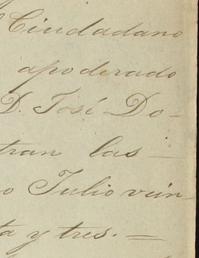 Ciudadano
apoderado
D. José Do-
tran las
o Julio vein-
ta y tres. =